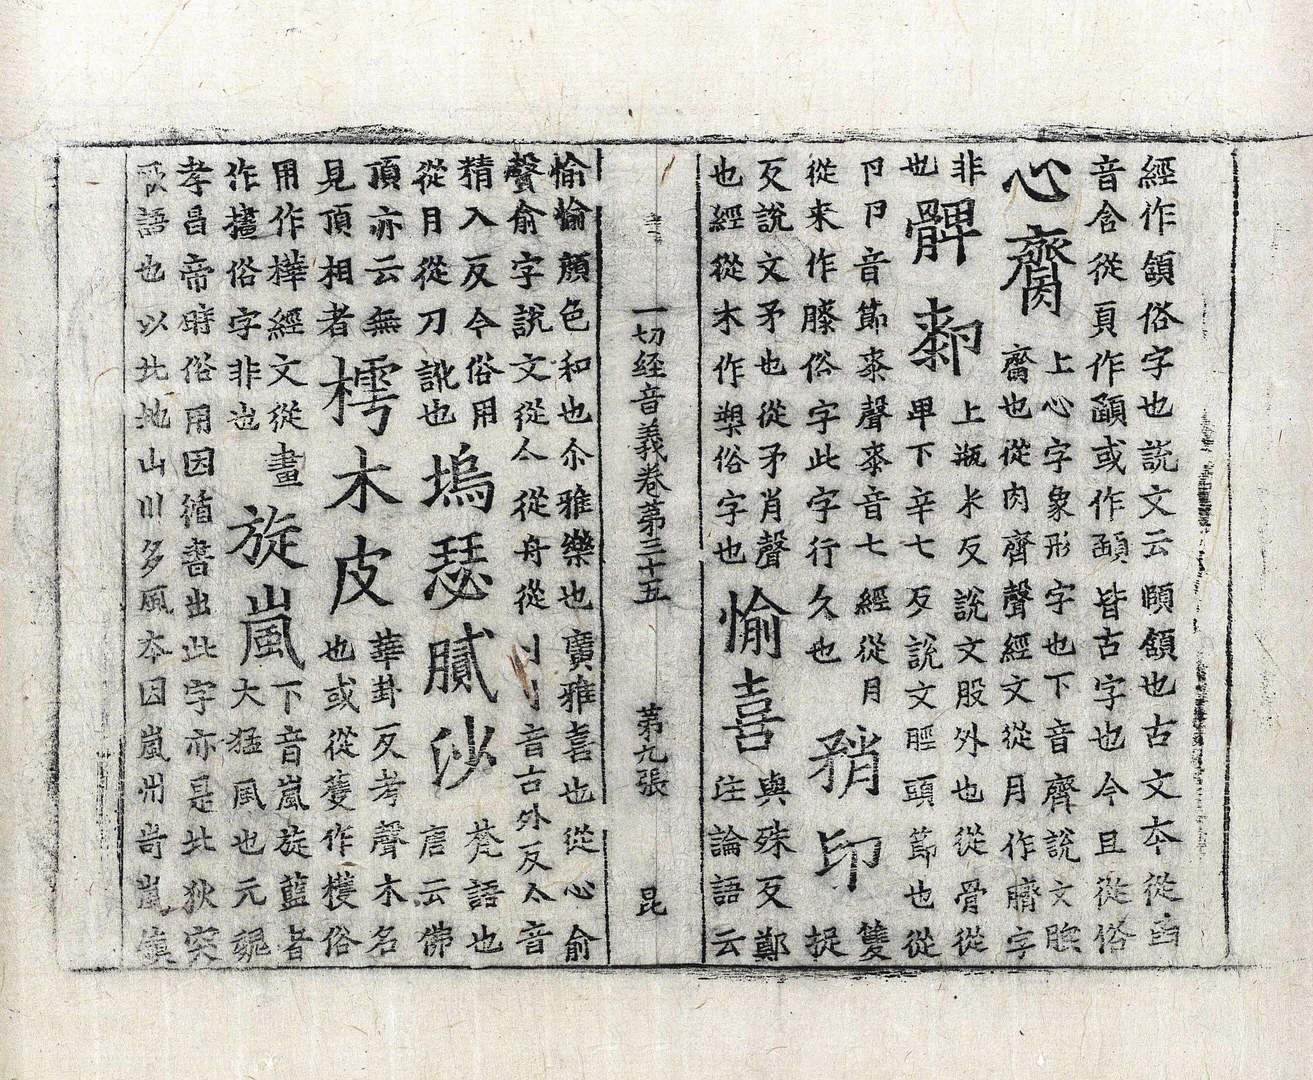 經作頷俗字也説文云頤頷也古文夲從圅
音含從頁作顄或作頤皆古字也今且從俗
心臍
上心字象形字也下音齊説文肶
齎也從肉齊聲經文從月作臍字
非
也
髀厀
上瓶米反説文股外也從骨從
卑下辛七反説文脛頭節也從
卪卪音節桼聲桼音七經從月
從来作膝俗字此字行久也
矟印
雙
捉
反説文矛也從矛肖聲
也經從木作槊俗字也
愉喜
與殊反鄭
注論語云
一切経音義卷苐三十五 苐九張 昆
愉愉顔色和也尒雅樂也廣雅喜也從心俞
聲俞字説文從亼從舟從刂刂音古外反亼音
精入反今俗用
從月從刀訛也
塢瑟膩沙
梵語也
唐云佛
頂亦云無
見頂相者
樗木皮
華卦反考聲木名
也或從蒦作檴俗
用作樺經文從畫
作㩇俗字非也
旋嵐
下音嵐旋藍者
大猛風也元魏
孝昌帝時俗用因循書出此字亦是北狄突
厥語也以北地山川多風夲因嵐州岢嵐鎮